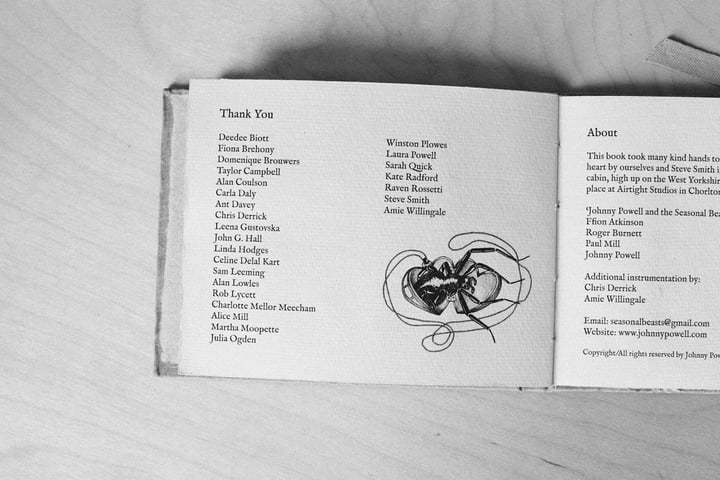 Thank You
Deedee Biott
Fiona Brehony
Domenique Brouwers
Taylor Campbell
Alan Coulson
Carla Daly
Ant Davey
Chris Derrick
Leena Gustovska
John G. Hall
Linda Hodges
Celine Delal Kart
Sam Leeming
Alan Lowles
Rob Lycett
Charlotte Mellor Meecham
Alice Mill
Martha Moopette
Julia Ogden
Winston Plowes
Laura Powell
Sarah Quick
Kate Radford
Raven Rossetti
Steve Smith
Amie Willingale
About
This book took many kind hands to
heart by ourselves and Steve Smith
cabin, high up on the West
place at Airtight Studios in
'Johnny Powell and the Seasonal
Ffion Atkinson
Roger Burnett
Paul Mill
Johnny Powell
Additional instrumentation by:
Chris Derrick
Amie Willingale
Email: seasonalbeasts@gmail.com
Website: www.johnnypowell.com
Copyright/All rights reserved by Johnny